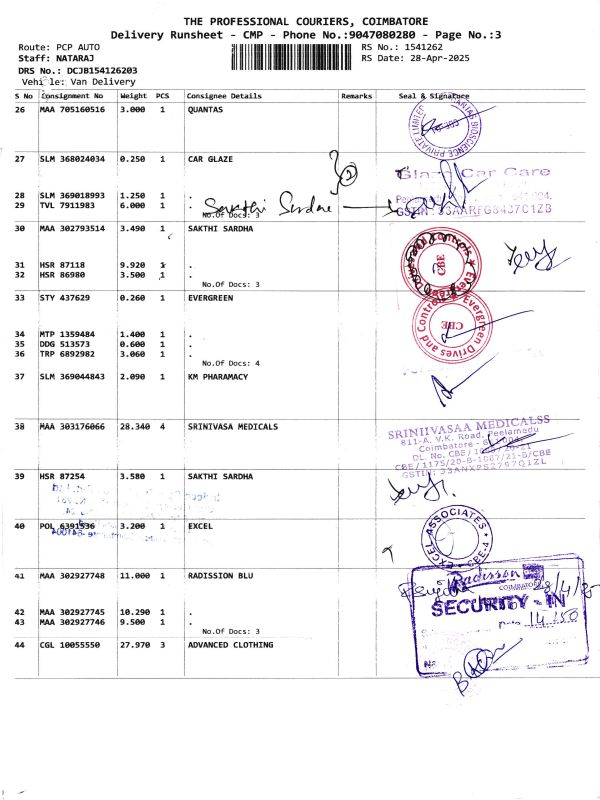 THE PROFESSIONAL COURIERS, COIMBATORE
Delivery Runsheet - CMP - Phone No.:9047080280 - Page No.:3
Route: PCP AUTO
RS No.: 1541262
Staff: NATARAJ
RS Date: 28-Apr-2025
DRS No.: DCJB154126203
Vehicle: Van Delivery
S No Consignment No Weight PCS Consignee Details Remarks Seal & Signature
26 MAA 705160516 3.000 1 QUANTAS
BIOSCIENCE PRIVATE LIMITED
27 SLM 368024034 0.250 1 CAR GLAZE
Car Care
28 SLM 369018993 1.250 1 .
29 TVL 7911983 6.000 1 . Sakthi Sardae
No.Of Docs: 3
GSTIN : 33AARFG8437C1ZB
30 MAA 302793514 3.490 1 SAKTHI SARDHA
31 HSR 87118 9.920 1 .
32 HSR 86980 3.500 1 .
No.Of Docs: 3
CBE
33 STY 437629 0.260 1 EVERGREEN
34 MTP 1359484 1.400 1 .
35 DDG 513573 0.600 1 .
36 TRP 6892982 3.060 1 .
No.Of Docs: 4
Evergreen Drives and Controls
CBE
37 SLM 369044843 2.090 1 KM PHARAMACY
38 MAA 303176066 28.340 4 SRINIVASA MEDICALS
SRINIIVASAA MEDICALSS
811-A, V.K. Road, Peelamedu
Coimbatore -
39 HSR 87254 3.580 1 SAKTHI SARDHA
40 POL 6391536 3.200 1 EXCEL
EXCEL ASSOCIATES
CBE-4
41 MAA 302927748 11.000 1 RADISSION BLU
Radisson
COIMBATORE
28/4/25
SECURITY - IN
42 MAA 302927745 10.290 1 .
43 MAA 302927746 9.500 1 .
No.Of Docs: 3
14:50
44 CGL 10055550 27.970 3 ADVANCED CLOTHING